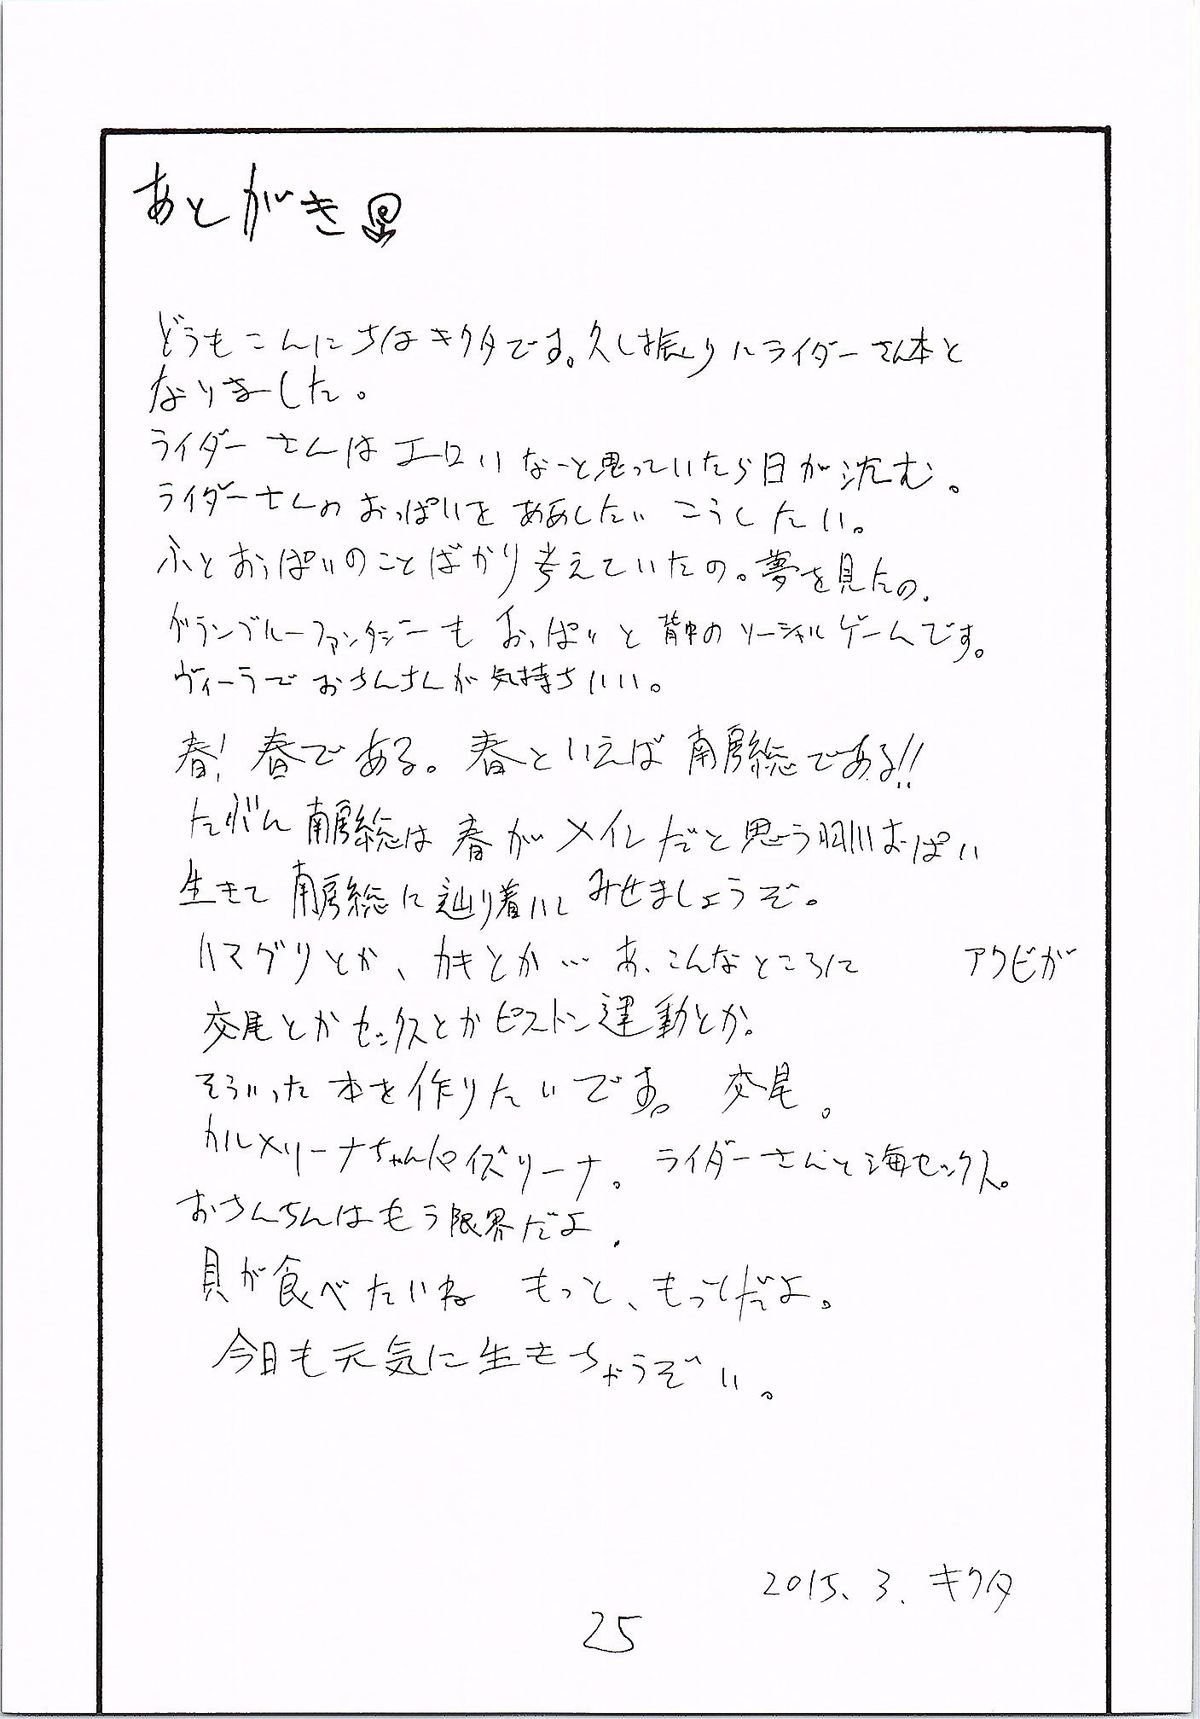 あとがき
どうもこんにちはキクタです。久し振りにライダーさん本と
なりました。
ライダーさんはエロいなーと思っていたら日が沈む。
ライダーさんのおっぱいをああしたいこうしたい。
ふとおっぱいのことばかり考えていたの。夢を見たの.
グランブルーファンタジーもおっぱいと背中のソーシャルゲームです。
ヴィーラでおちんちんが気持ちいい。
春! 春である。春といえば南房総である!!
たぶん南房総は春がメインだと思う羽川おぱい
生きて南房総に辿り着いてみせましょうぞ。
ハマグリとか、カキとか… あ、こんなところに アワビが
交尾とかセックスとかピストン運動とか。
そういった本を作りたいです。 交尾。
カルメリーナちゃんや イズリーナ。 ライダーさんと海セックス。
おちんちんはもう限界だよ.
貝が食べたいね もっと、もっとだよ。
今日も元気に生きちゃうぞい。
2015. 3. キクタ
25